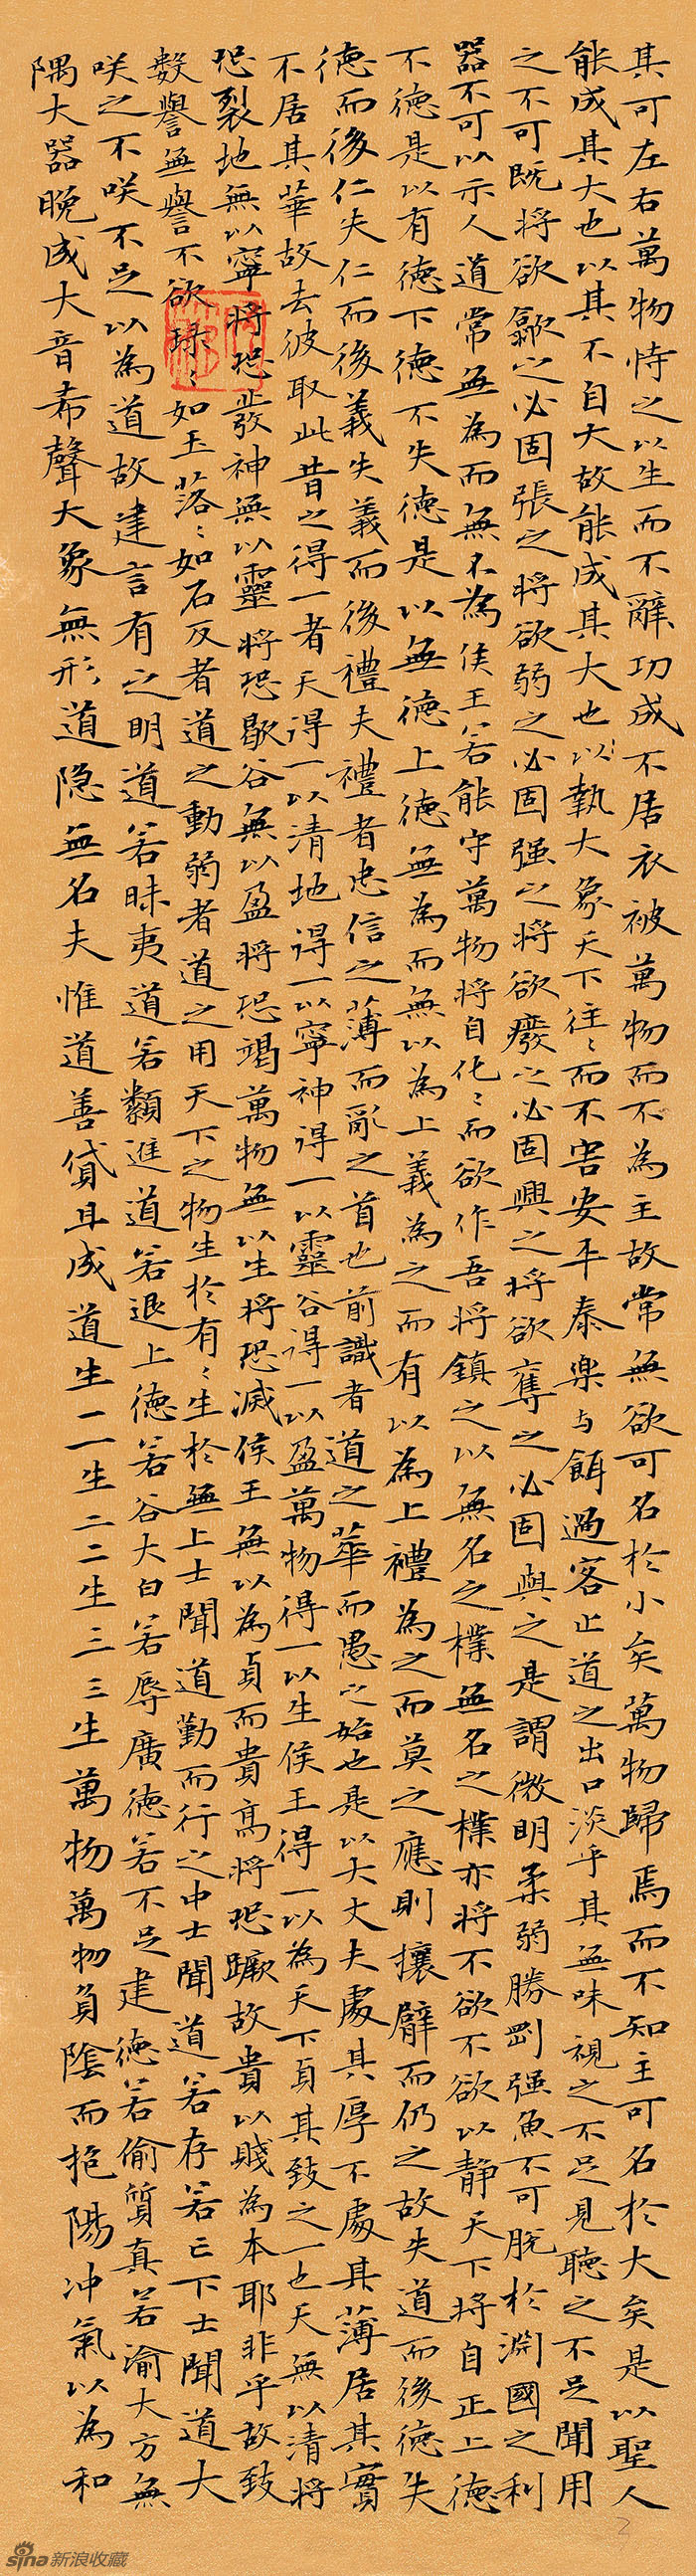 其可左右萬物恃之以生而不辭功成不居衣被萬物而不為主故常無欲可名於小矣萬物歸焉而不知主可名於大矣是以聖人
能成其大也以其不自大故能成其大也以執大象天下往〻而不害安平泰樂与餌過客止道之出口淡乎其無味視之不足見聽之不足聞用
之不可既将欲歙之必固張之将欲弱之必固强之将欲廢之必固興之将欲奪之必固與之是謂微明柔弱勝剛强魚不可脱於淵國之利
器不可以示人道常無為而無不為侯王若能守萬物将自化〻而欲作吾将鎮之以無名之樸無名之樸亦将不欲不欲以静天下将自正上德
不德是以有德下德不失德是以無德上德無為而無以為上義為之而有以為上禮為之而莫之應則攘臂而仍之故失道而後德失
德而後仁失仁而後義失義而後禮夫禮者忠信之薄而亂之首也前識者道之華而愚之始也是以大丈夫處其厚不處其薄居其實
不居其華故去彼取此昔之得一者天得一以清地得一以寧神得一以靈谷得一以盈萬物得一以生侯王得一以為天下貞其致之一也天無以清将
恐裂地無以寧将恐發神無以靈将恐歇谷無以盈将恐竭萬物無以生将恐滅侯王無以為貞而貴高将恐蹶故貴以賤為本耶非乎故致
數譽無譽不欲琭〻如玉落〻如石反者道之動弱者道之用天下之物生於有〻生於無上士聞道勤而行之中士聞道若存若亡下士聞道大
咲之不咲不足以為道故建言有之明道若昧夷道若纇進道若退上德若谷大白若辱廣德若不足建德若偷質真若渝大方無
隅大器晚成大音希聲大象無形道隐無名夫惟道善貸且成道生一一生二二生三三生萬物萬物負陰而抱陽冲氣以為和
sina新浪收藏